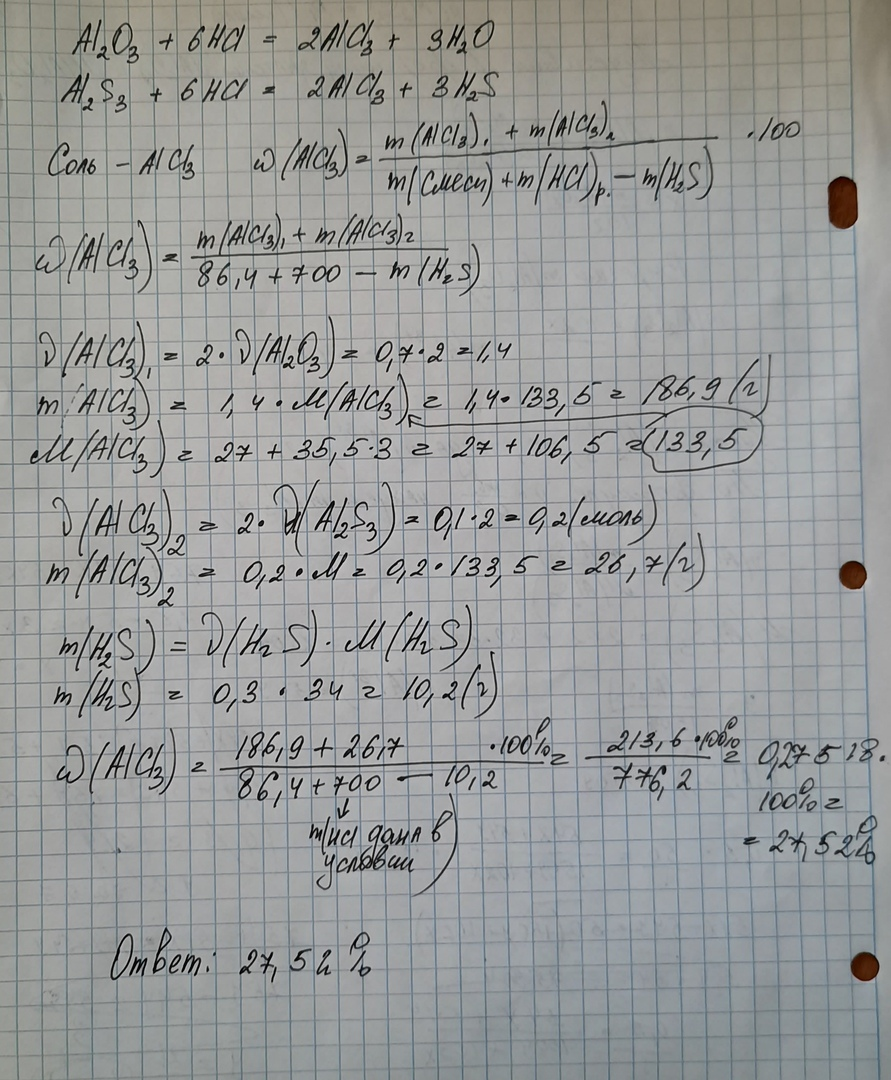 Al₂O₃ + 6HCl = 2AlCl₃ + 3H₂O
Al₂S₃ + 6HCl = 2AlCl₃ + 3H₂S
Соль - AlCl₃ ω(AlCl₃) = (m(AlCl₃)₁ + m(AlCl₃)₂) / (m(смеси) + m(HCl)р. - m(H₂S)) · 100
ω(AlCl₃) = (m(AlCl₃)₁ + m(AlCl₃)₂) / (86,4 + 700 - m(H₂S))
ν(AlCl₃)₁ = 2 · ν(Al₂O₃) = 0,7 · 2 = 1,4
m(AlCl₃) = 1,4 · M(AlCl₃) = 1,4 · 133,5 = 186,9 (г)
M(AlCl₃) = 27 + 35,5 · 3 = 27 + 106,5 = 133,5
ν(AlCl₃)₂ = 2 · ν(Al₂S₃) = 0,1 · 2 = 0,2 (моль)
m(AlCl₃)₂ = 0,2 · M = 0,2 · 133,5 = 26,7 (г)
m(H₂S) = ν(H₂S) · M(H₂S)
m(H₂S) = 0,3 · 34 = 10,2 (г)
ω(AlCl₃) = (186,9 + 26,7 · 100%) / (86,4 + 700 - 10,2) = (213,6 · 100%) / 776,2 = 0,27518 ·
100% =
= 27,52%
m(HCl дана в
условии)
Ответ: 27,52%